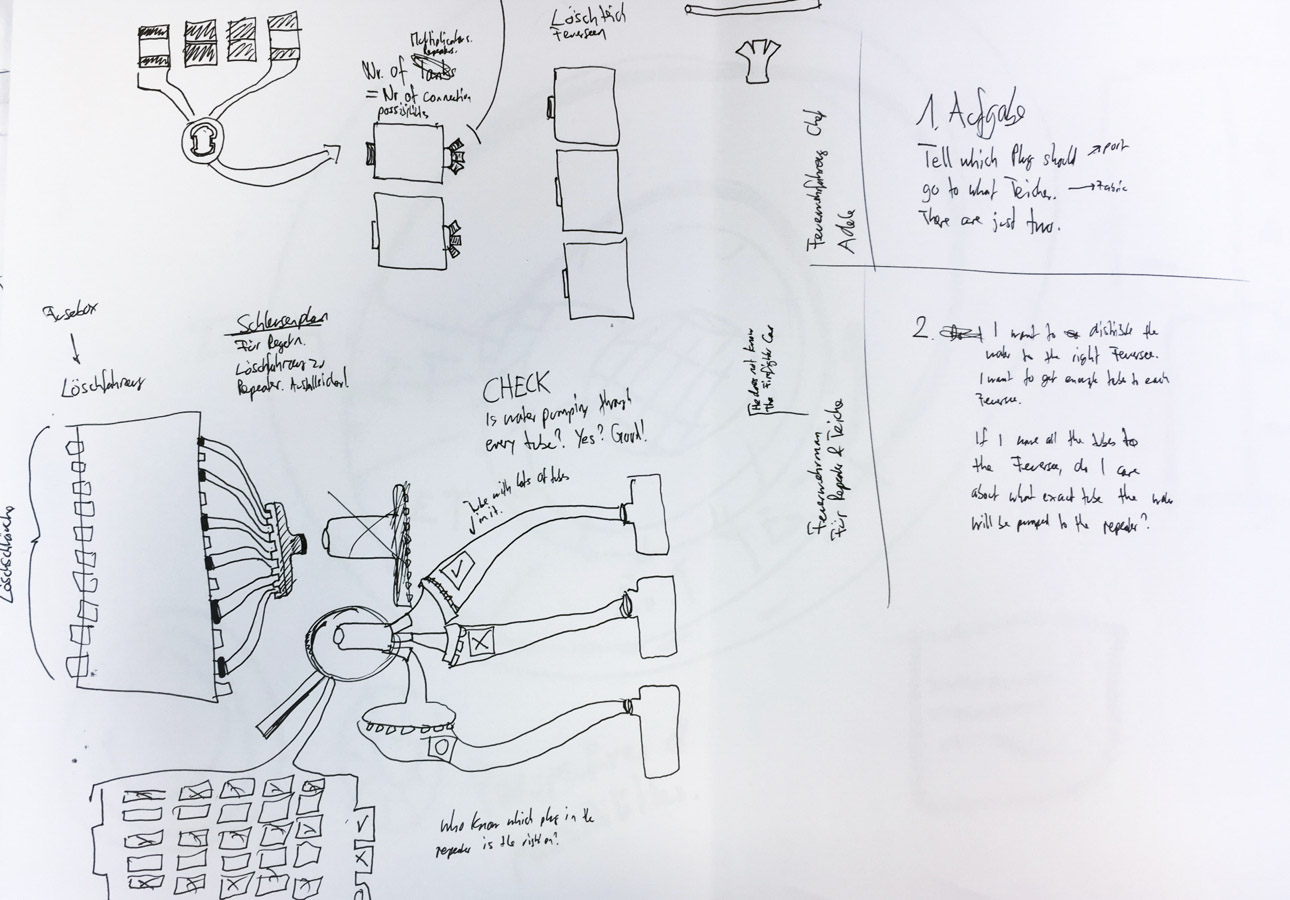 Multiplicators.
Repeater.
Nr. of Tanks
= Nr of connection
possibilities
Löschteich
Feuerseen
Feuerwehrfahrzeug Chef
Adele
1. Aufgabe
Tell which Plug should → port
go to what Teiche. → Fabric
There are just two.
Fusebox
Löschfahrzeug
Löschschläuche
Schleusenplan
Für Regeln.
Löschfahrzeug zu
Repeater.
CHECK
Is water pumping through
every tube? Yes? Good!
Tube with lots of tubes
in it.
He does not know
the Firefighter Car
Feuerwehrmann
Für Repeater & Teiche
2. I want to distribute the
water to the right Feuersee.
I want to get enough tubes to each
Feuersee.
If I have all the tubes to
the Feuersee, do I care
about what exact tube the water
will be pumped to the repeater?
Who know which plug in the
repeater is the right on?